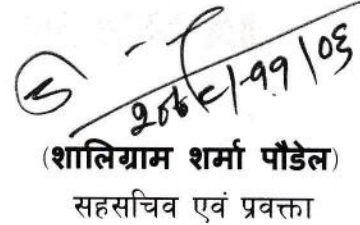 २०७८।११।०६
(शालिग्राम शर्मा पौडेल)
सहसचिव एवं प्रवक्ता